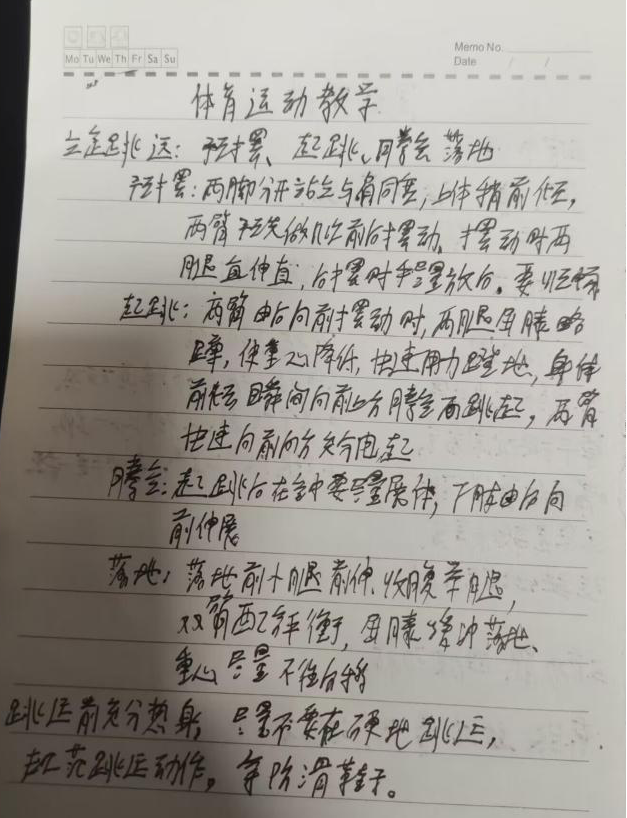 Mo Tu We Th Fr Sa Su
Memo No.
Date / /
体育运动教学
立定跳远：预摆、起跳、腾空、落地
预摆：两脚分开站立与肩同宽，上体稍前倾，
两臂预先做几次前后摆动。摆动时两
腿直伸直，后摆时尽量放后。要
起跳：两臂由后向前摆动时，两腿屈膝略
蹲，使重心降低，快速用力蹬地，身体
前移瞬间向前上方腾空而跳起，两臂
快速向前向方
腾空：起跳后在空中要尽量展体，下肢由后向
前伸展
落地：落地前小腿前伸、收腹举腿，
双臂配乙平衡，屈膝缓冲落地、
重心尽量不往后移
跳远前充分热身，尽量不要在硬地跳远，
规范跳远动作。穿防滑鞋子。